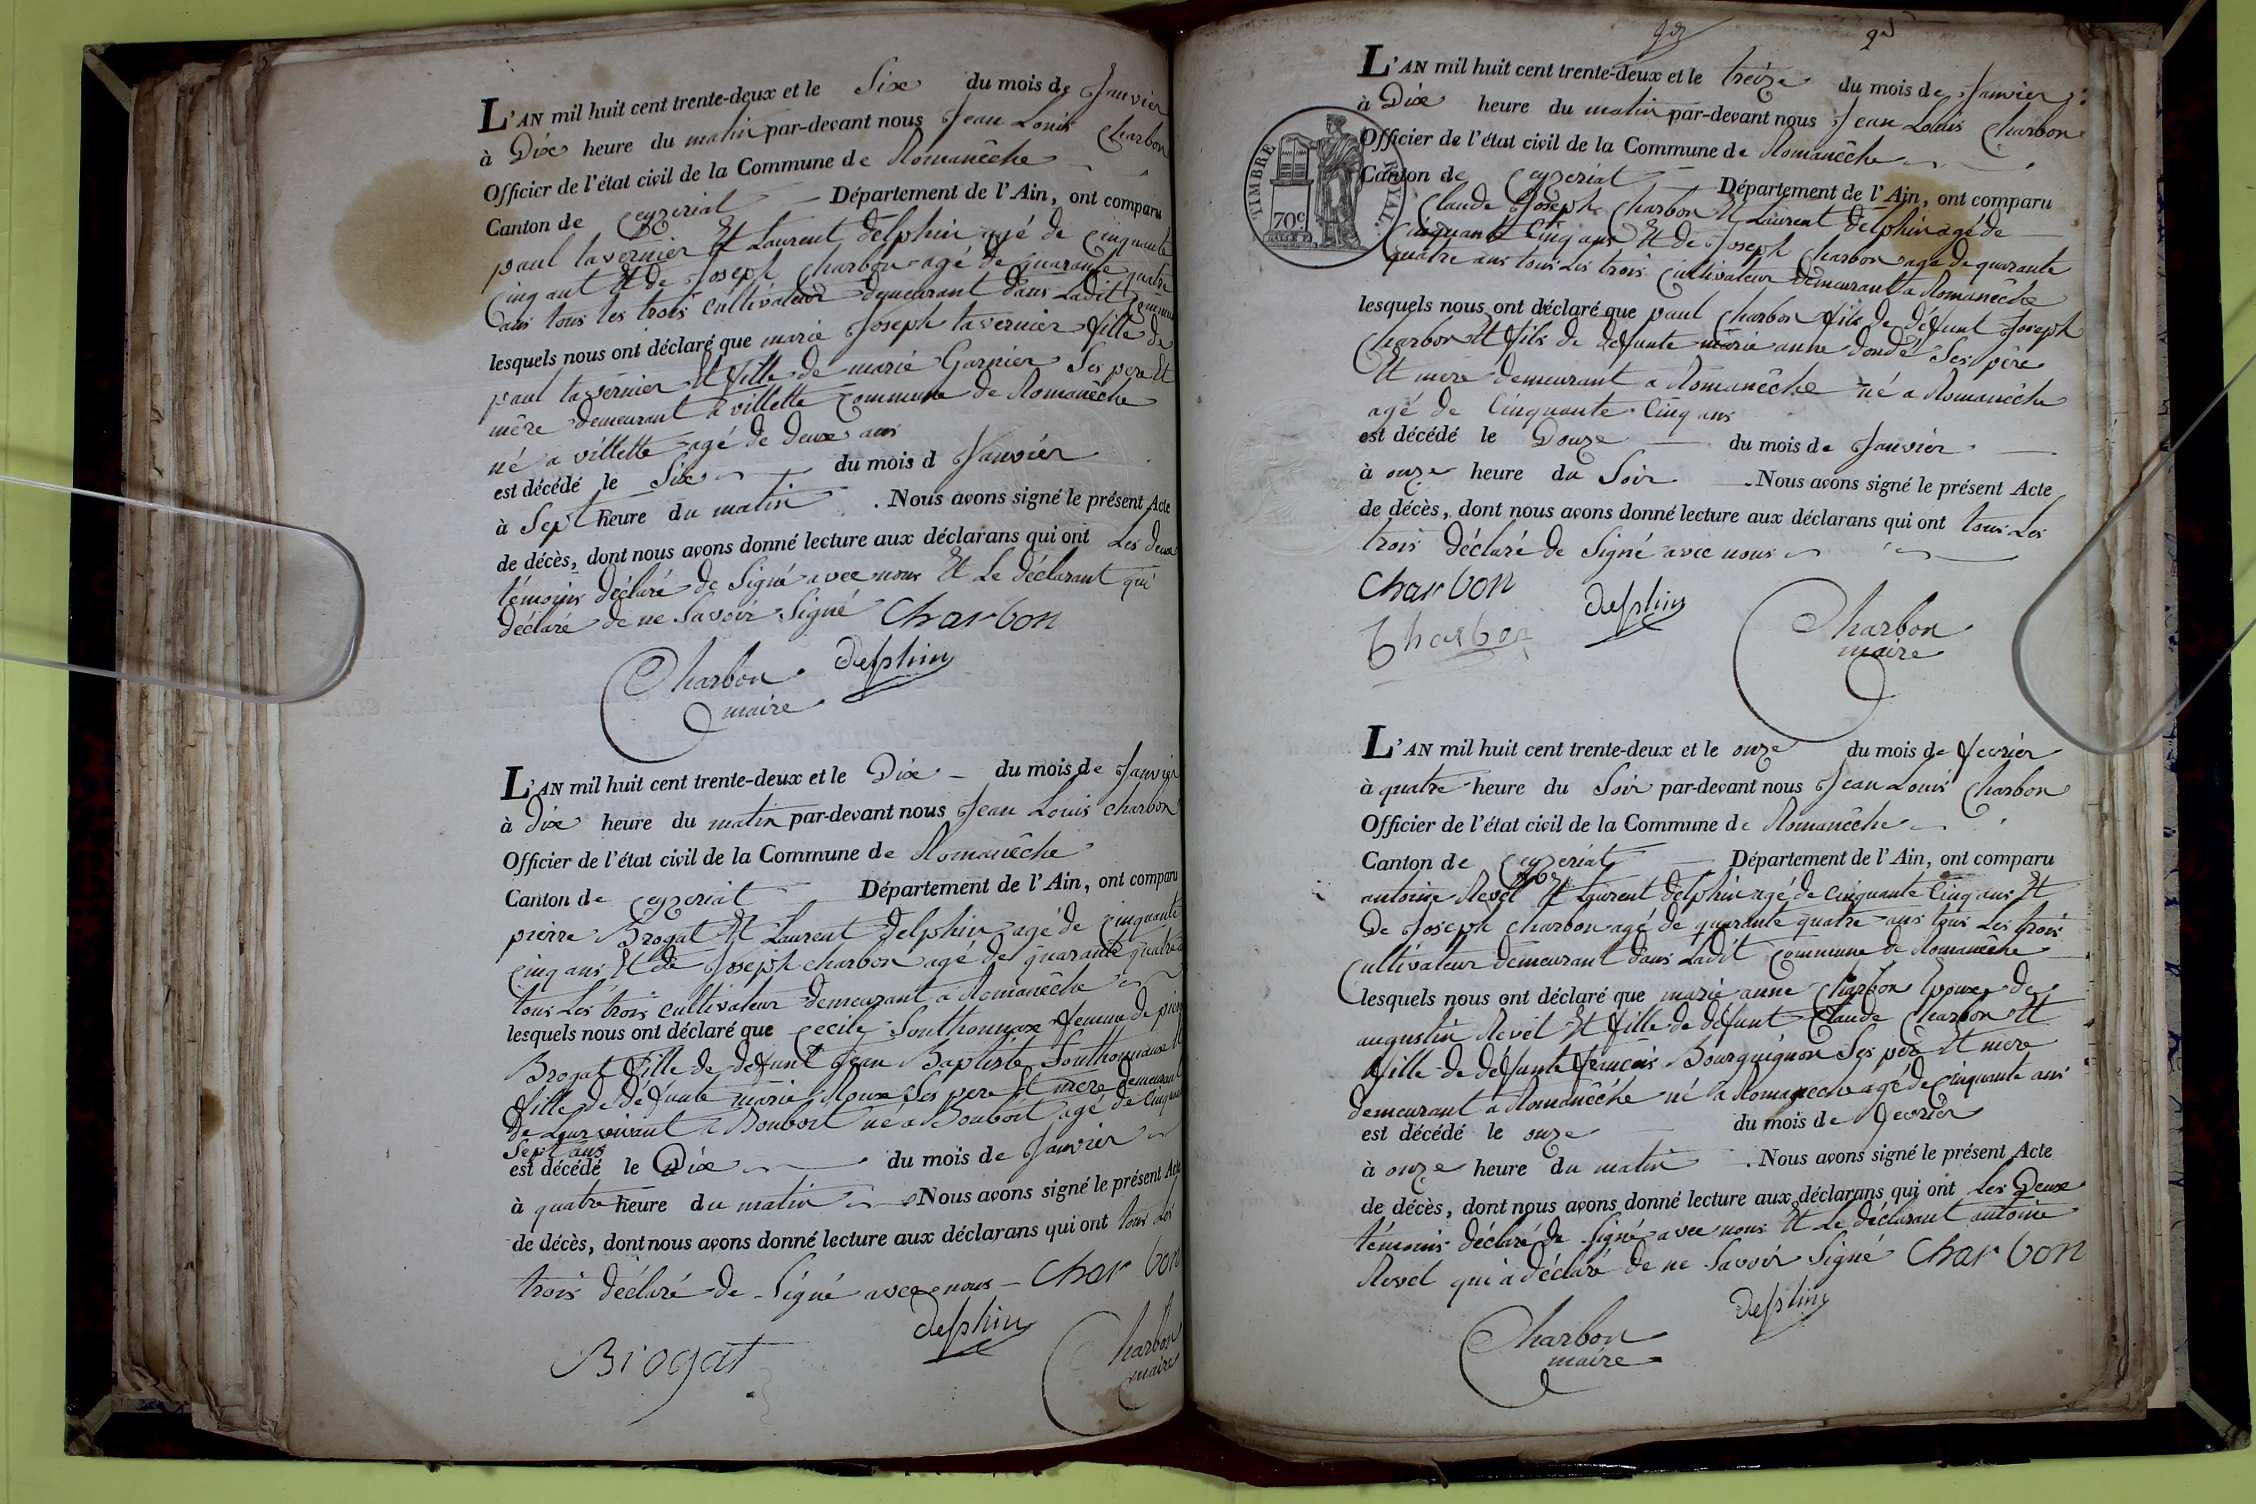 L'AN mil huit cent trente-deux et le Six du mois de Janvier
à Dix heure du matin par-devant nous Jean Louis Charbon
Officier de l'état civil de la Commune de Romanêche
Canton de Ceyzeriat Département de l'Ain, ont comparu
paul tavernier Et Laurent delphin agé de cinquante
cinq ant Et de Joseph Charbon agé de quarante quatre
ans tous les trois cultivateur demeurant dans Ladit Commune
lesquels nous ont déclaré que marie Joseph tavernier fille de
paul tavernier Et fille de marie Garnier Ses pere Et
mère demeurant a villette commune de Romanêche
né a villette agé de deux ans
est décédé le Six du mois d Janvier
à Sept heure du matin . Nous avons signé le présent Acte
de décès, dont nous avons donné lecture aux déclarans qui ont Les deux
témoins déclaré de Signé avec nous Et Le déclarant qui
déclaré de ne Savoir Signé Charbon
Charbon delphin
maire
L'AN mil huit cent trente-deux et le Dix du mois de Janvier
à dix heure du matin par-devant nous Jean Louis Charbon
Officier de l'état civil de la Commune de Romanêche
Canton de Ceyzeriat Département de l'Ain, ont comparu
pierre Brogat Et Laurent delphin agé de cinquante
cinq ans Et de Joseph charbon agé de quarante quatre
tous Les trois cultivateur demeurant a Romanêche
lesquels nous ont déclaré que Cecile Southonnax femme de
Brogat Fille de defunt Jean Baptiste Southonnaxe
fille de défunte marie Roux Ses pere Et mere demeurant
de Leur vivant a Bouboit né a Bouboit agé de Cinquante
Sept ans
est décédé le Dix du mois de Janvier
à quatre heure du matin Nous avons signé le présent Acte
de décès, dont nous avons donné lecture aux déclarans qui ont tous Les
trois déclaré de Signé avec nous Charbon
Brogat delphin Charbon
maire
L'AN mil huit cent trente-deux et le treize du mois de Janvier
à Dix heure du matin par-devant nous Jean Louis Charbon
Officier de l'état civil de la Commune de Romanêche
Canton de Ceyzeriat Département de l'Ain, ont comparu
TIMBRE ROYAL.
70c
Claude Joseph Charbon Et Laurent delphin agé de
Cinquante Cinq ans Et de Joseph Charbon agé de quarante
quatre ans tous Les trois cultivateur demeurant a Romanêche
lesquels nous ont déclaré que paul Charbon fils de défunt Joseph
Charbon Et fils de défunte marie anne dondé Ses père
Et mere demeurant a Romanêche né a Romanêche
agé de Cinquante Cinq ans
est décédé le Douze du mois de Janvier
à onze heure du Soir . Nous avons signé le présent Acte
de décès, dont nous avons donné lecture aux déclarans qui ont tous Les
trois déclaré de Signé avec nous
Charbon delphin
Charbon Charbon
maire
L'AN mil huit cent trente-deux et le onze du mois de fevrier
à quatre heure du Soir par-devant nous Jean Louis Charbon
Officier de l'état civil de la Commune de Romanêche
Canton de Ceyzeriat Département de l'Ain, ont comparu
antoine Revel Et Laurent delphin agé de Cinquante Cinq ans Et
De Joseph charbon agé de quarante quatre ans tous Les trois
Cultivateur demeurant dans Ladit Commune de Romanêche
lesquels nous ont déclaré que marie anne Charbon Epouxe de
augustin Revel Et fille de défunt Claude Charbon Et
fille de défunte françois Bourguignon Ses père Et mere
demeurant a Romanêche né a Romaneche agé de cinquante ans
est décédé le onze du mois de fevrier
à onze heure du matin . Nous avons signé le présent Acte
de décès, dont nous avons donné lecture aux déclarans qui ont Les Deux
témoins déclaré de Signé avec nous Et Le déclarant antoine
Revel qui a déclaré de ne Savoir Signé Charbon
Charbon delphin
maire